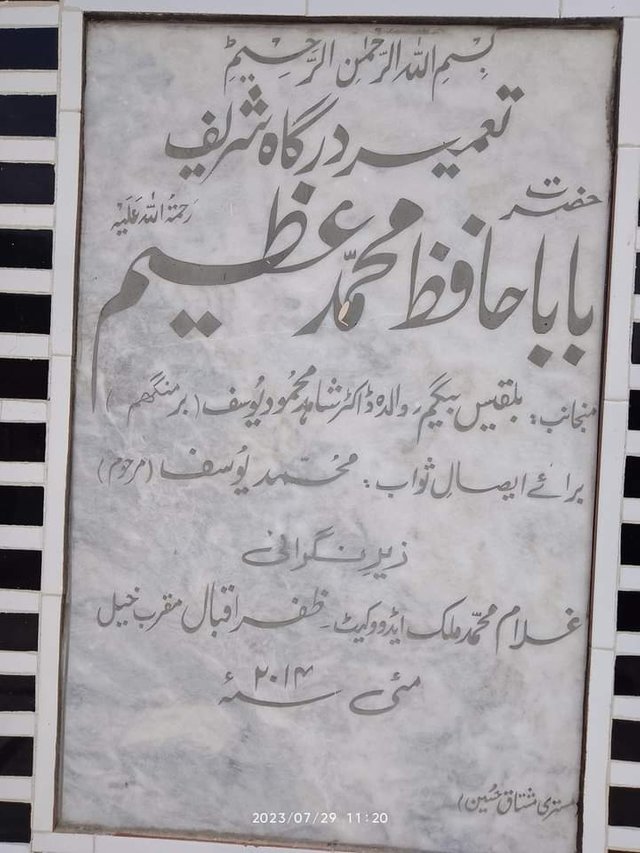 بِسْمِ اللهِ الرَّحْمٰنِ الرَّحِيْمِ
تعمیر درگاہ شریف
حضرت
بابا حافظ محمّد عظیم رَحمۃُ اللہ عَلَیْہ
منجانب: بلقیس بیگم، والدہ ڈاکٹر شاہد محمود یُوسف (برمنگھم)
برائے ایصالِ ثواب: محُمّد یُوسف (مرحوم)
زیرِ نگرانی
غلام محمّد ملک ایڈووکیٹ۔ ظفر اقبال مقرب خیل
مئی ۲۰۱۴ سنہء
(مستری مشتاق حسین)
2023/07/29 11:20